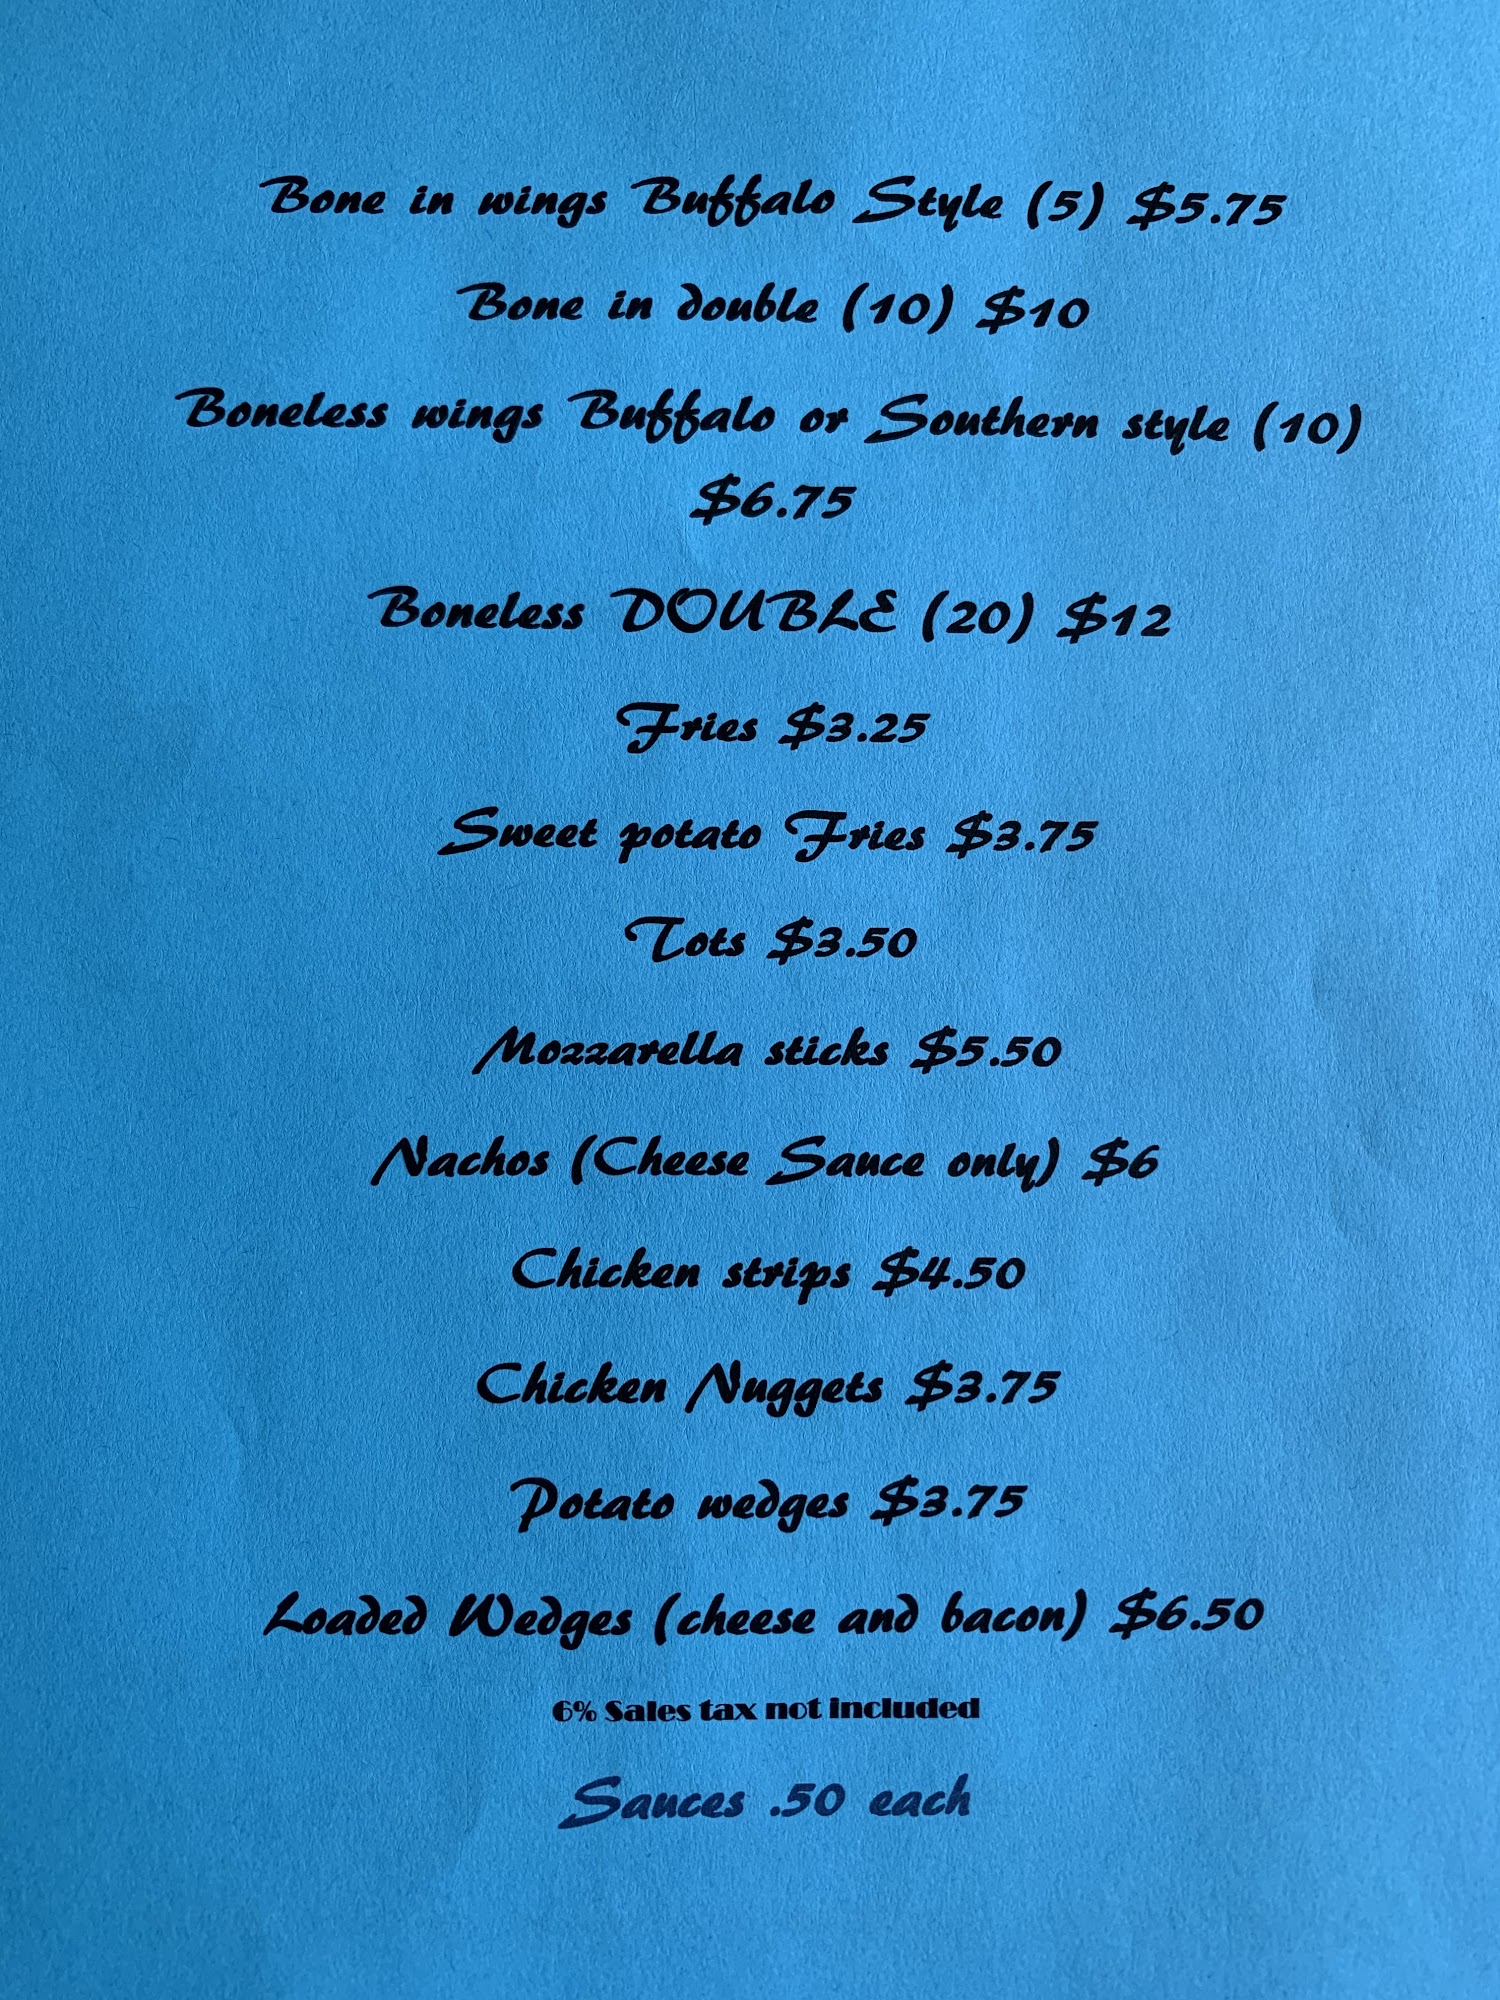 Bone in wings Buffalo Style (5) $5.75
Bone in double (10) $10
Boneless wings Buffalo or Southern style (10)
$6.75
Boneless DOUBLE (20) $12
Fries $3.25
Sweet potato Fries $3.75
Tots $3.50
Mozzarella sticks $5.50
Nachos (Cheese Sauce only) $6
Chicken strips $4.50
Chicken Nuggets $3.75
Potato wedges $3.75
Loaded Wedges (cheese and bacon) $6.50
6% Sales tax not included
Sauces .50 each